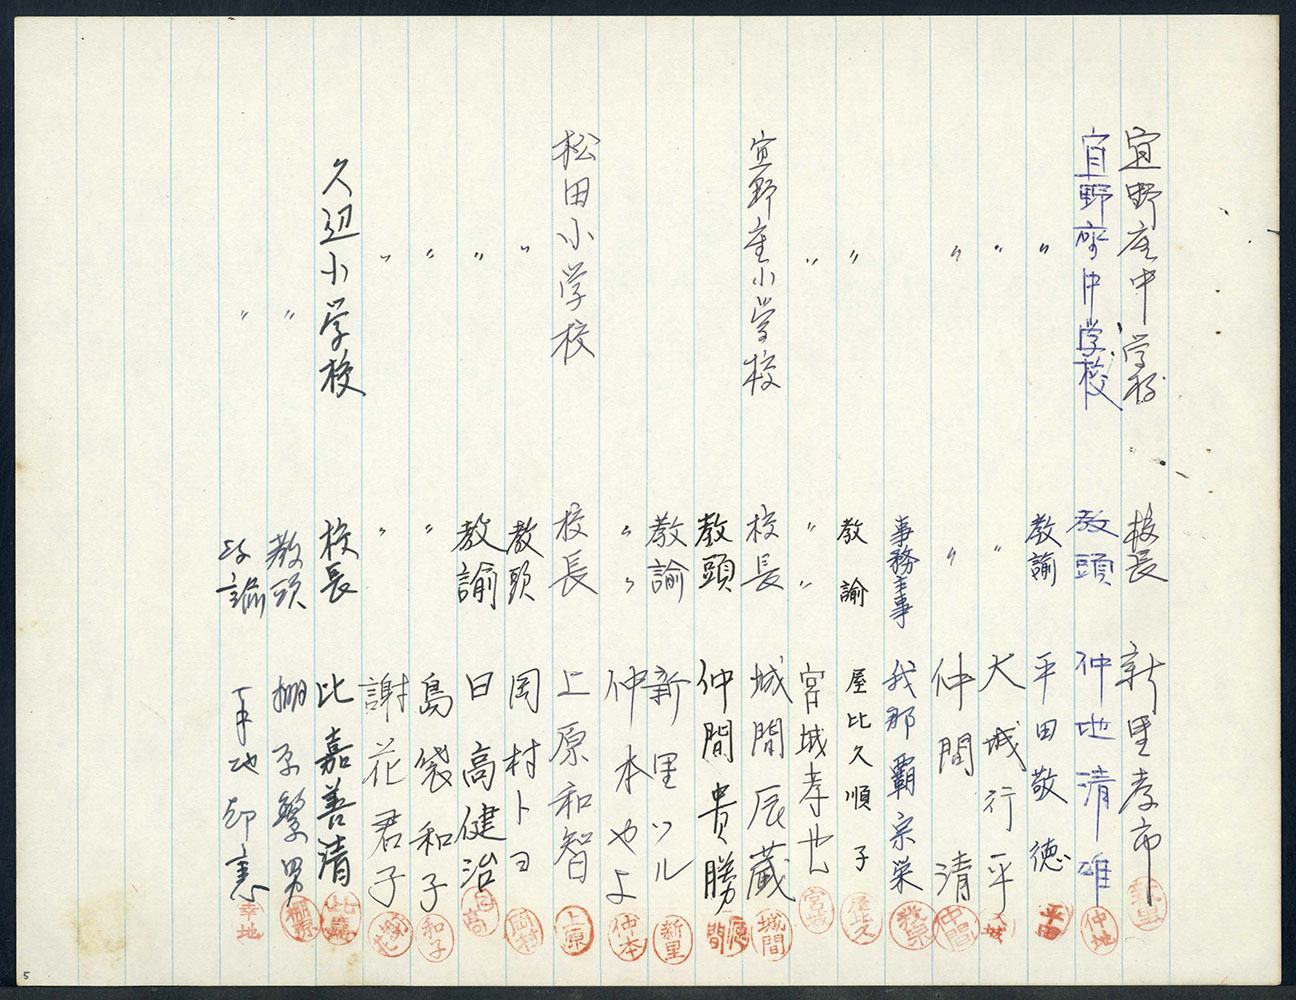 宜野座中学校 校長 新里孝市 新里
宜野座中学校 教頭 仲地清雄 仲地
〃 教諭 平田敬徳 平田
〃 〃 大城行平 大城
〃 〃 仲間清 仲間
事務主事 我那覇宗栄
〃 教諭 屋比久順子 屋比久
〃 〃 〃 宮城孝也 宮城
宜野座小学校 校長 城間辰蔵 城間
教頭 仲間貴勝 仲間
教諭 新里ツル 新里
〃 〃 仲本やよ 仲本
松田小学校 校長 上原和智 上原
〃 教頭 岡村トヨ 岡村
〃 教諭 日高健治 日高
〃 〃 島袋和子 和子
〃 〃 謝花君子 謝花
久辺小学校 校長 比嘉善清 比嘉
〃 教頭 棚原繁男 棚原
〃 教諭 幸地 幸地
5